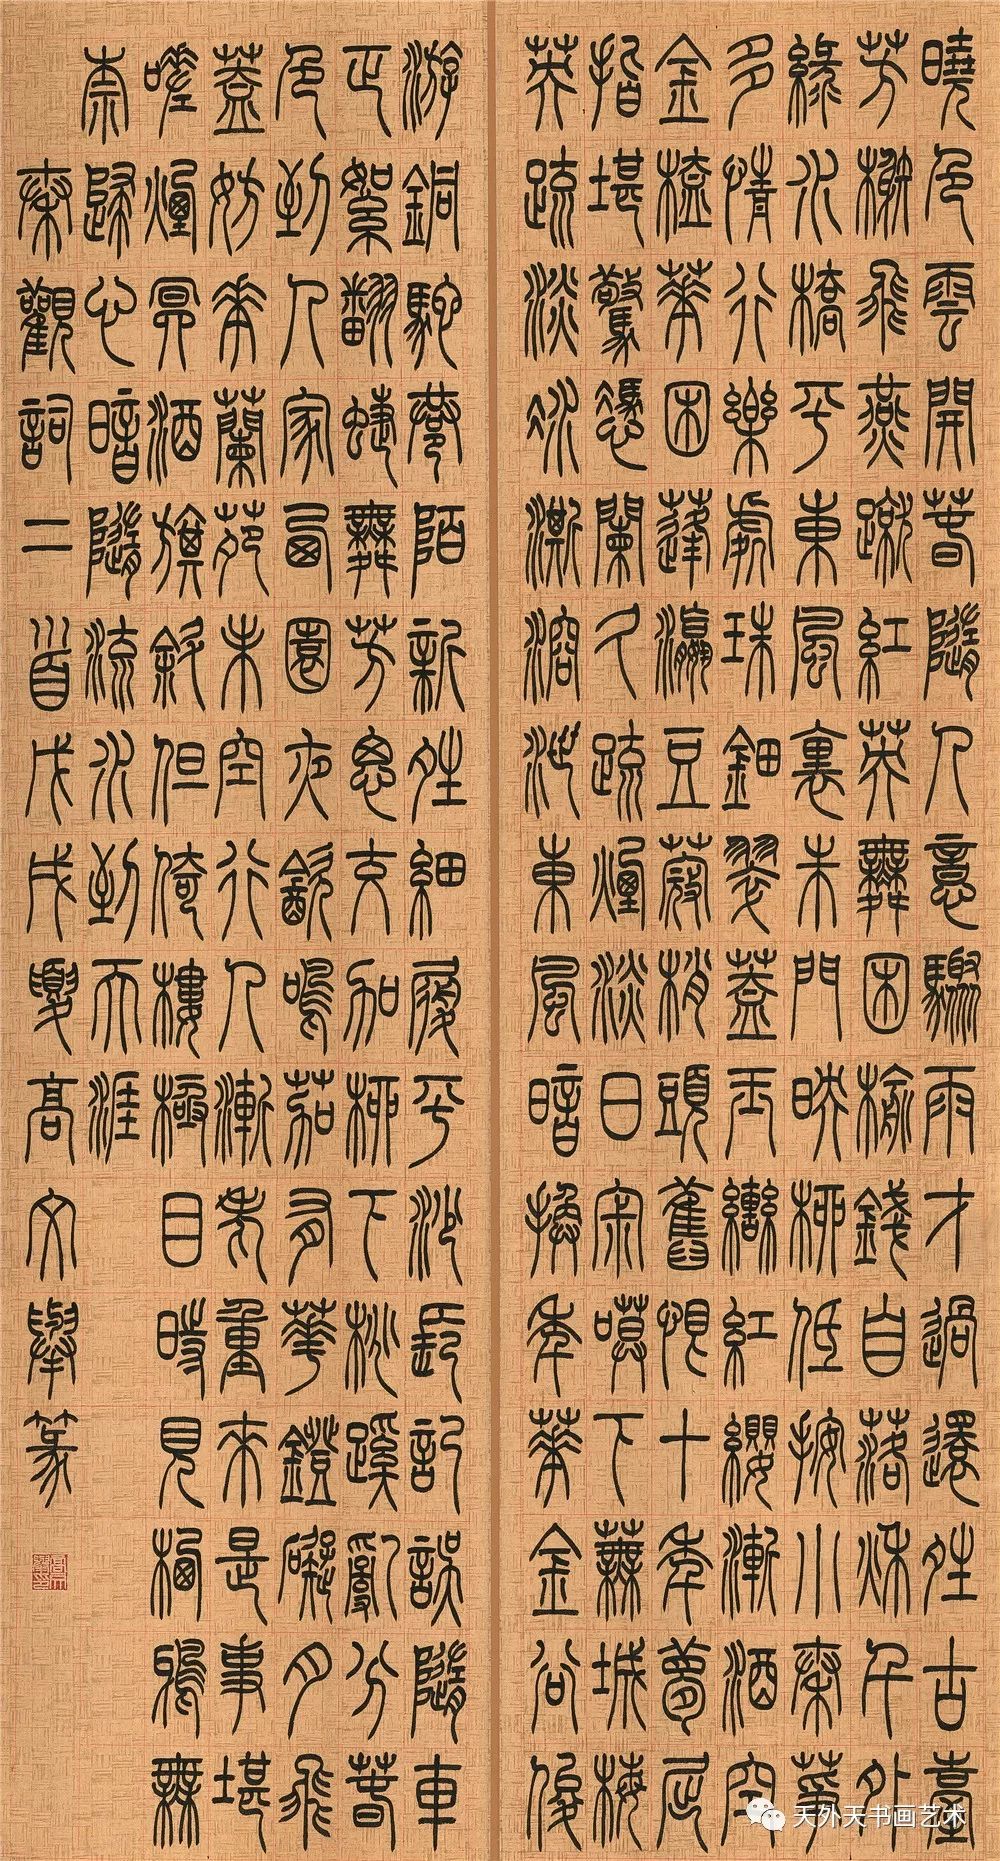 曉色雲開春隨人意驟雨才過還晴古臺
芳榭飛燕蹴紅英舞困榆錢自落秋千外
綠水橋平東風裏朱門映柳低按小秦箏
多情行樂處珠鈿翠蓋玉轡紅纓漸酒空
金榼華困蓬瀛豆蔻梢頭舊恨十年夢屈
指堪驚憑闌久疏煙淡日寂寞下蕪城梅
英疏淡冰澌溶洩東風暗換年華金谷俊
游銅駝巷陌新晴細履平沙長記誤隨車
正絮翻蜨舞芳思交加柳下桃蹊亂分春
色到人家西園夜飲鳴笳有華鐙礙月飛
蓋妨華蘭苑未空行人漸老重來是事堪
嗟煙冥酒旗斜但倚樓極目時見栖鴉無
柰歸心暗隨流水到天涯
秦觀詞二首戊戌夏高文舉篆
天外天书画艺术